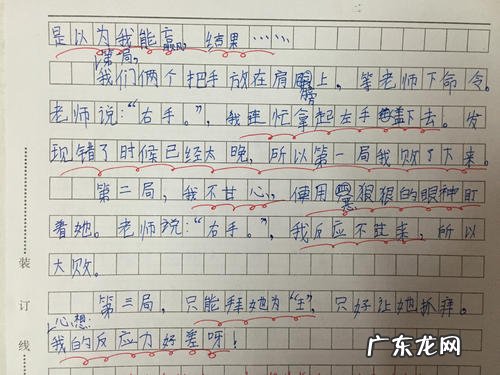 是以为我能赢，结果……
第一局，我们俩个把手放在肩膀上，等老师下命令。
老师说：“右手。”，我连忙拿起左手盖下去。发
现错了时候已经太晚，所以第一局我败了下来。
第二局，我不甘心，便用恶狠狠的眼神盯
着她。老师说：“右手。”，我反应不过来，所以
大败。
装
第三局，只能拜她为“王”，只好让她抓拜。
订
心想：
线
我的反应力好差呀！
广东龙网